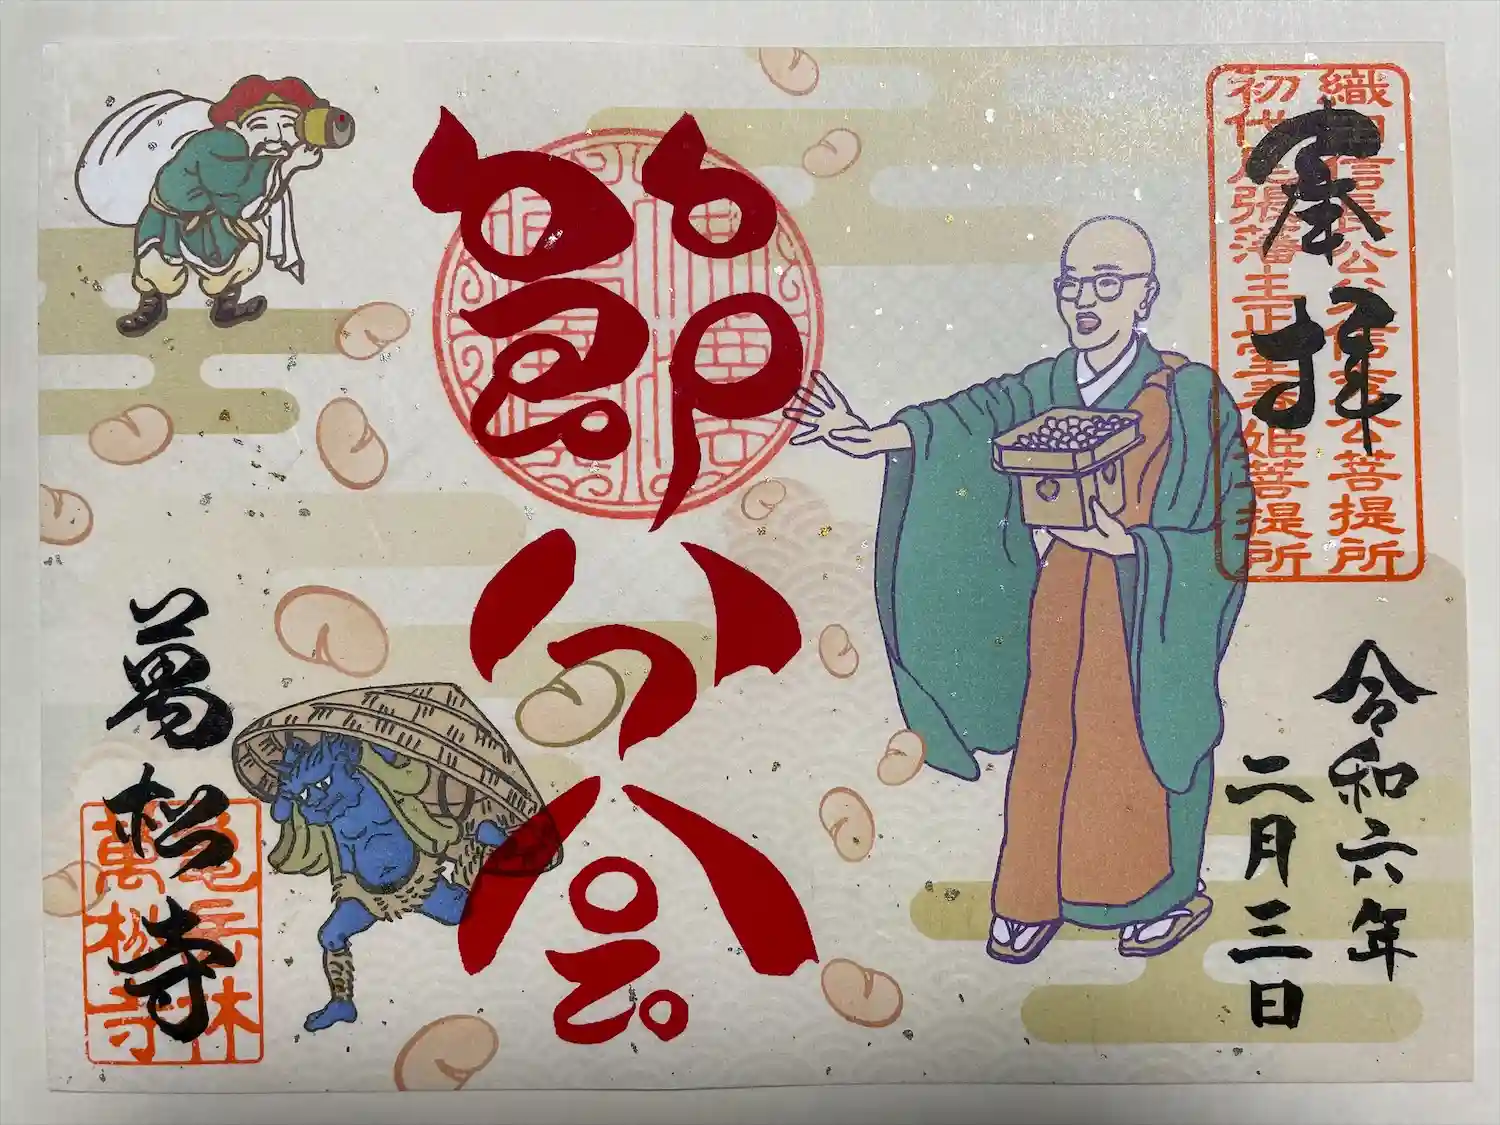 奉拝
織田信長公公父信秀公菩提所
初代尾張藩主正室春姫菩提所
令和六年
二月三日
節分会
萬松寺
亀岳林
萬松寺